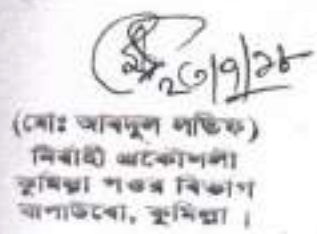 ২৩/৭/১৮
(মোঃ আবদুল লতিফ)
নির্বাহী প্রকৌশলী
কুমিল্লা পওর বিভাগ
বাপাউবো, কুমিল্লা ।